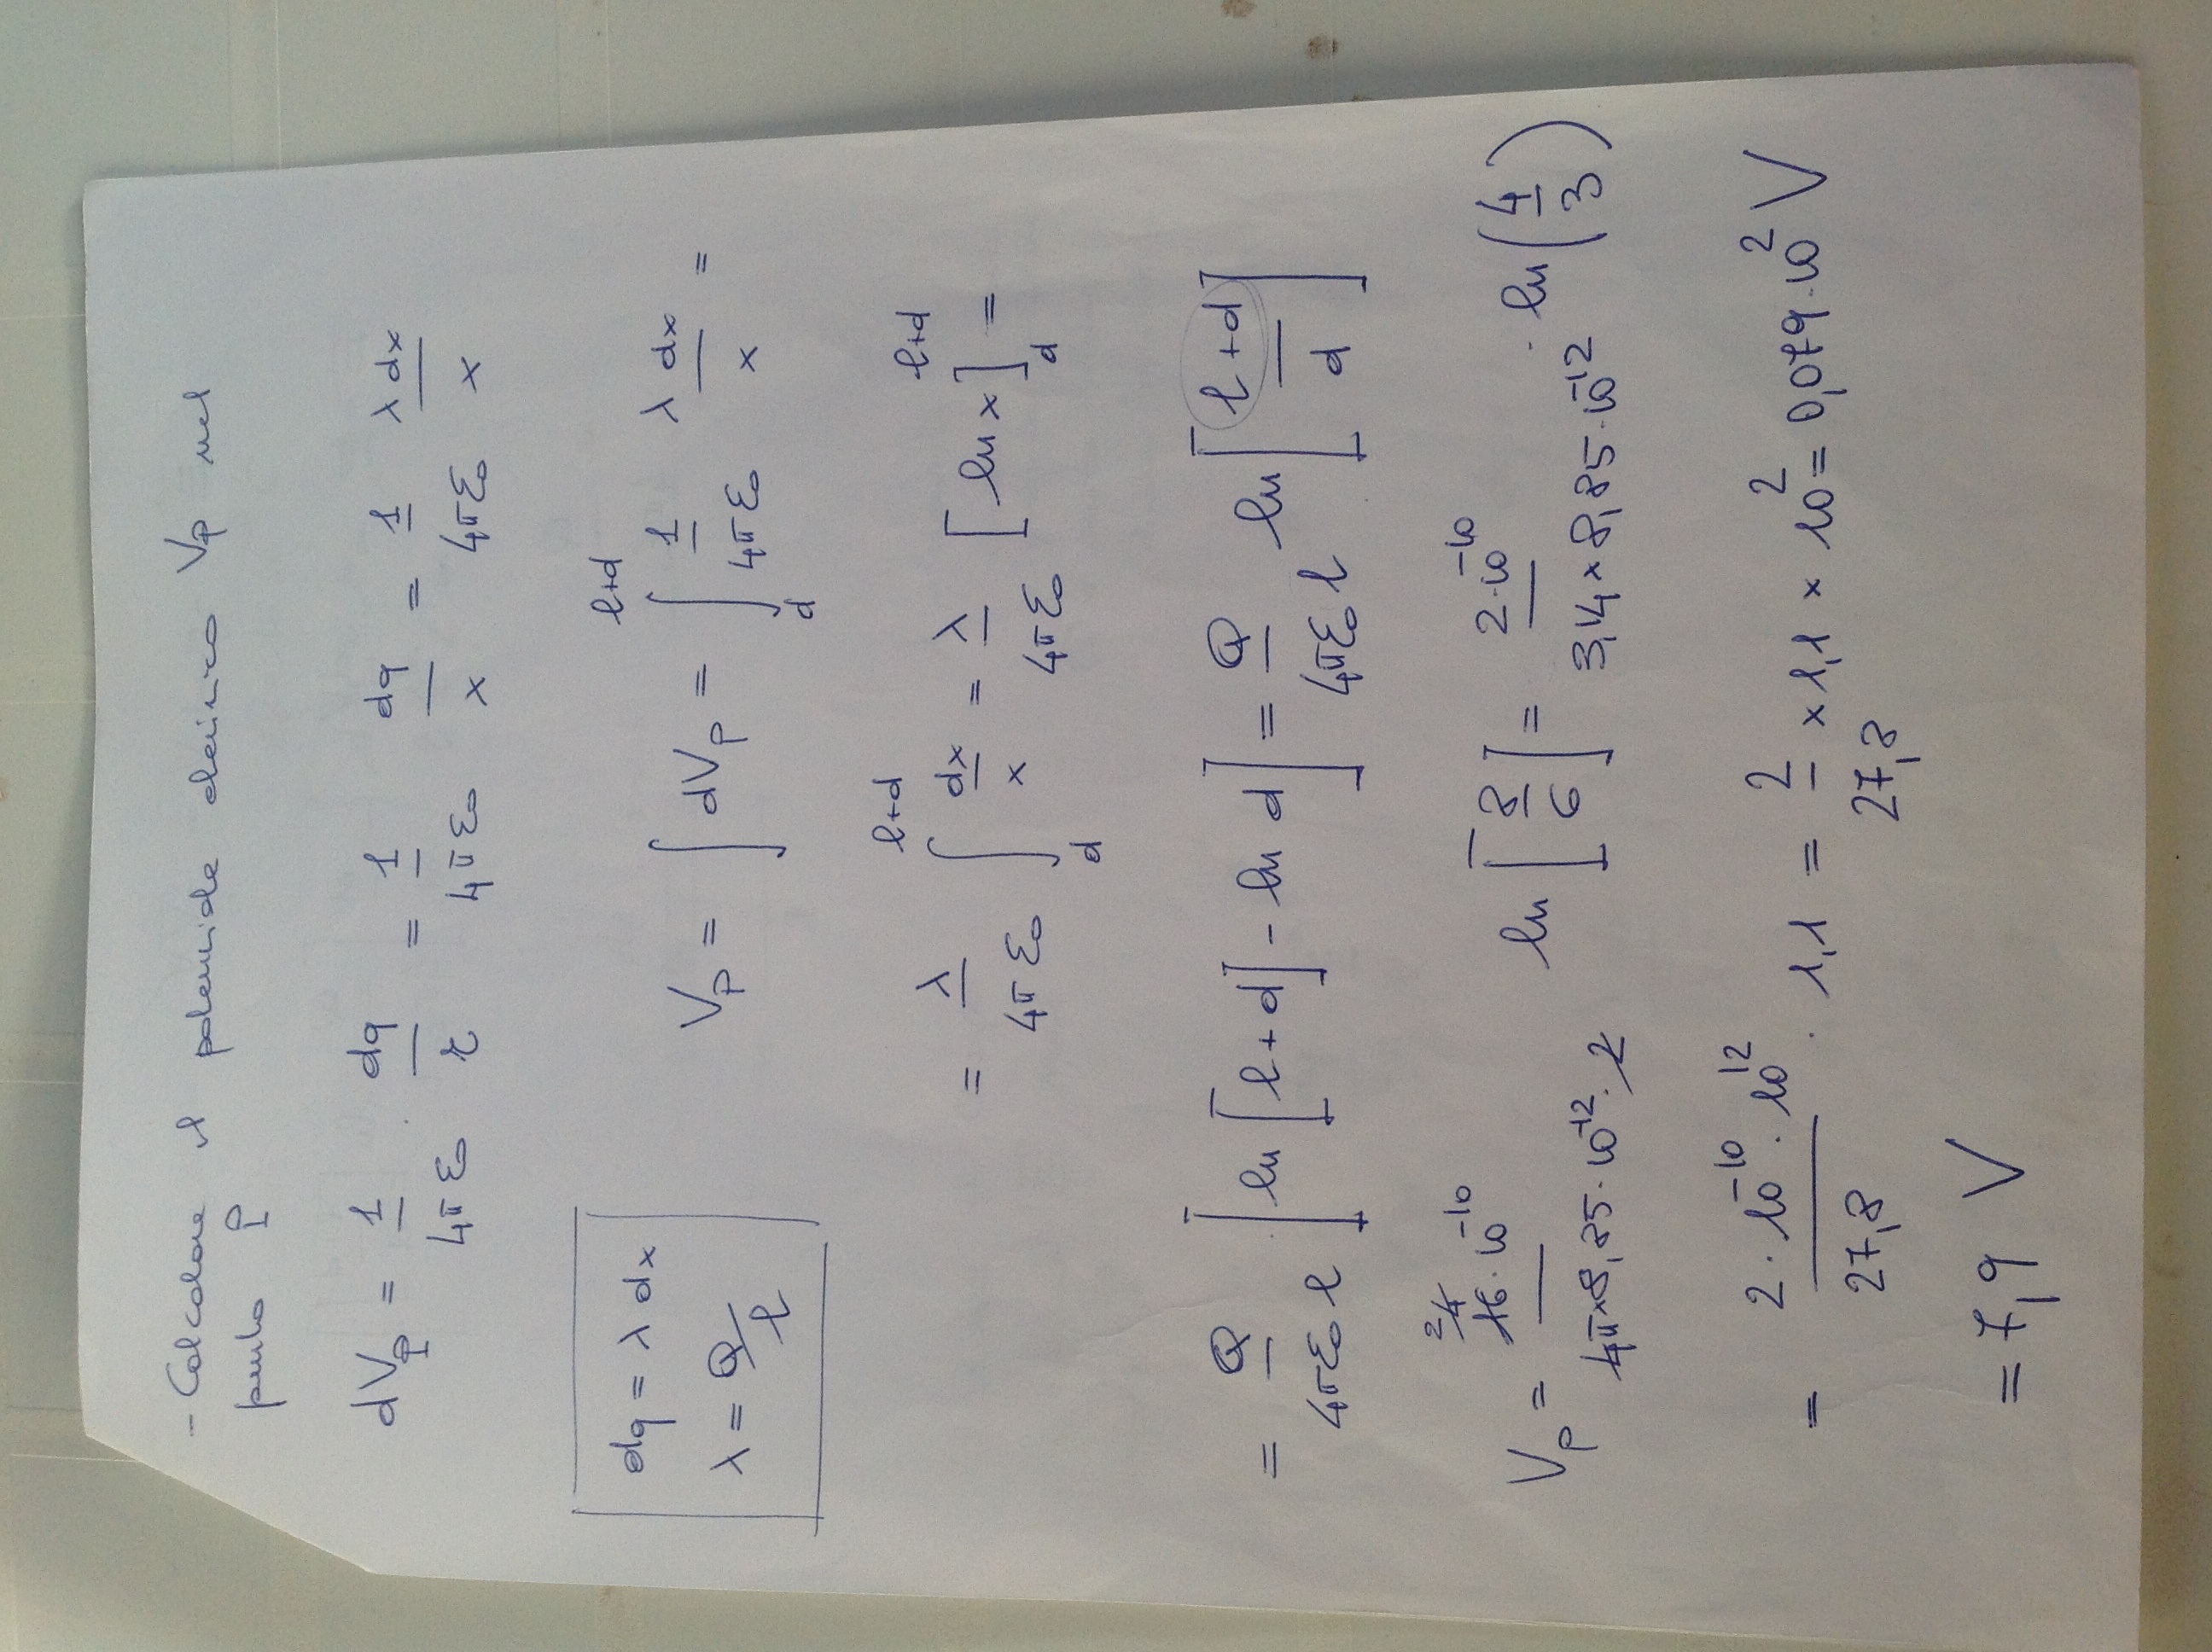 - Calcolare il potenziale elettrico Vp nel
punto P
dVp = 1/4πε₀ · dq/r = 1/4πε₀ dq/x = 1/4πε₀ λdx/x
dq = λ dx
λ = Q/l
Vp = ∫ dVp = ∫_d^{l+d} 1/4πε₀ λ dx/x =
= λ/4πε₀ ∫_d^{l+d} dx/x = λ/4πε₀ [ln x]_d^{l+d} =
= Q/4πε₀ l [ln [l+d] - ln d] = Q/4πε₀ l ln [l+d/d]
Vp = 2 4 16·10⁻¹⁰/4π×8,85·10⁻¹²·2 ln [8/6] = 2·10⁻¹⁰/3,14×8,85·10⁻¹² · ln (4/3)
= 2·10⁻¹⁰·10¹²/27,8 · 1,1 = 2/27,8 × 1,1 × 10² = 0,079·10² V
= 7,9 V